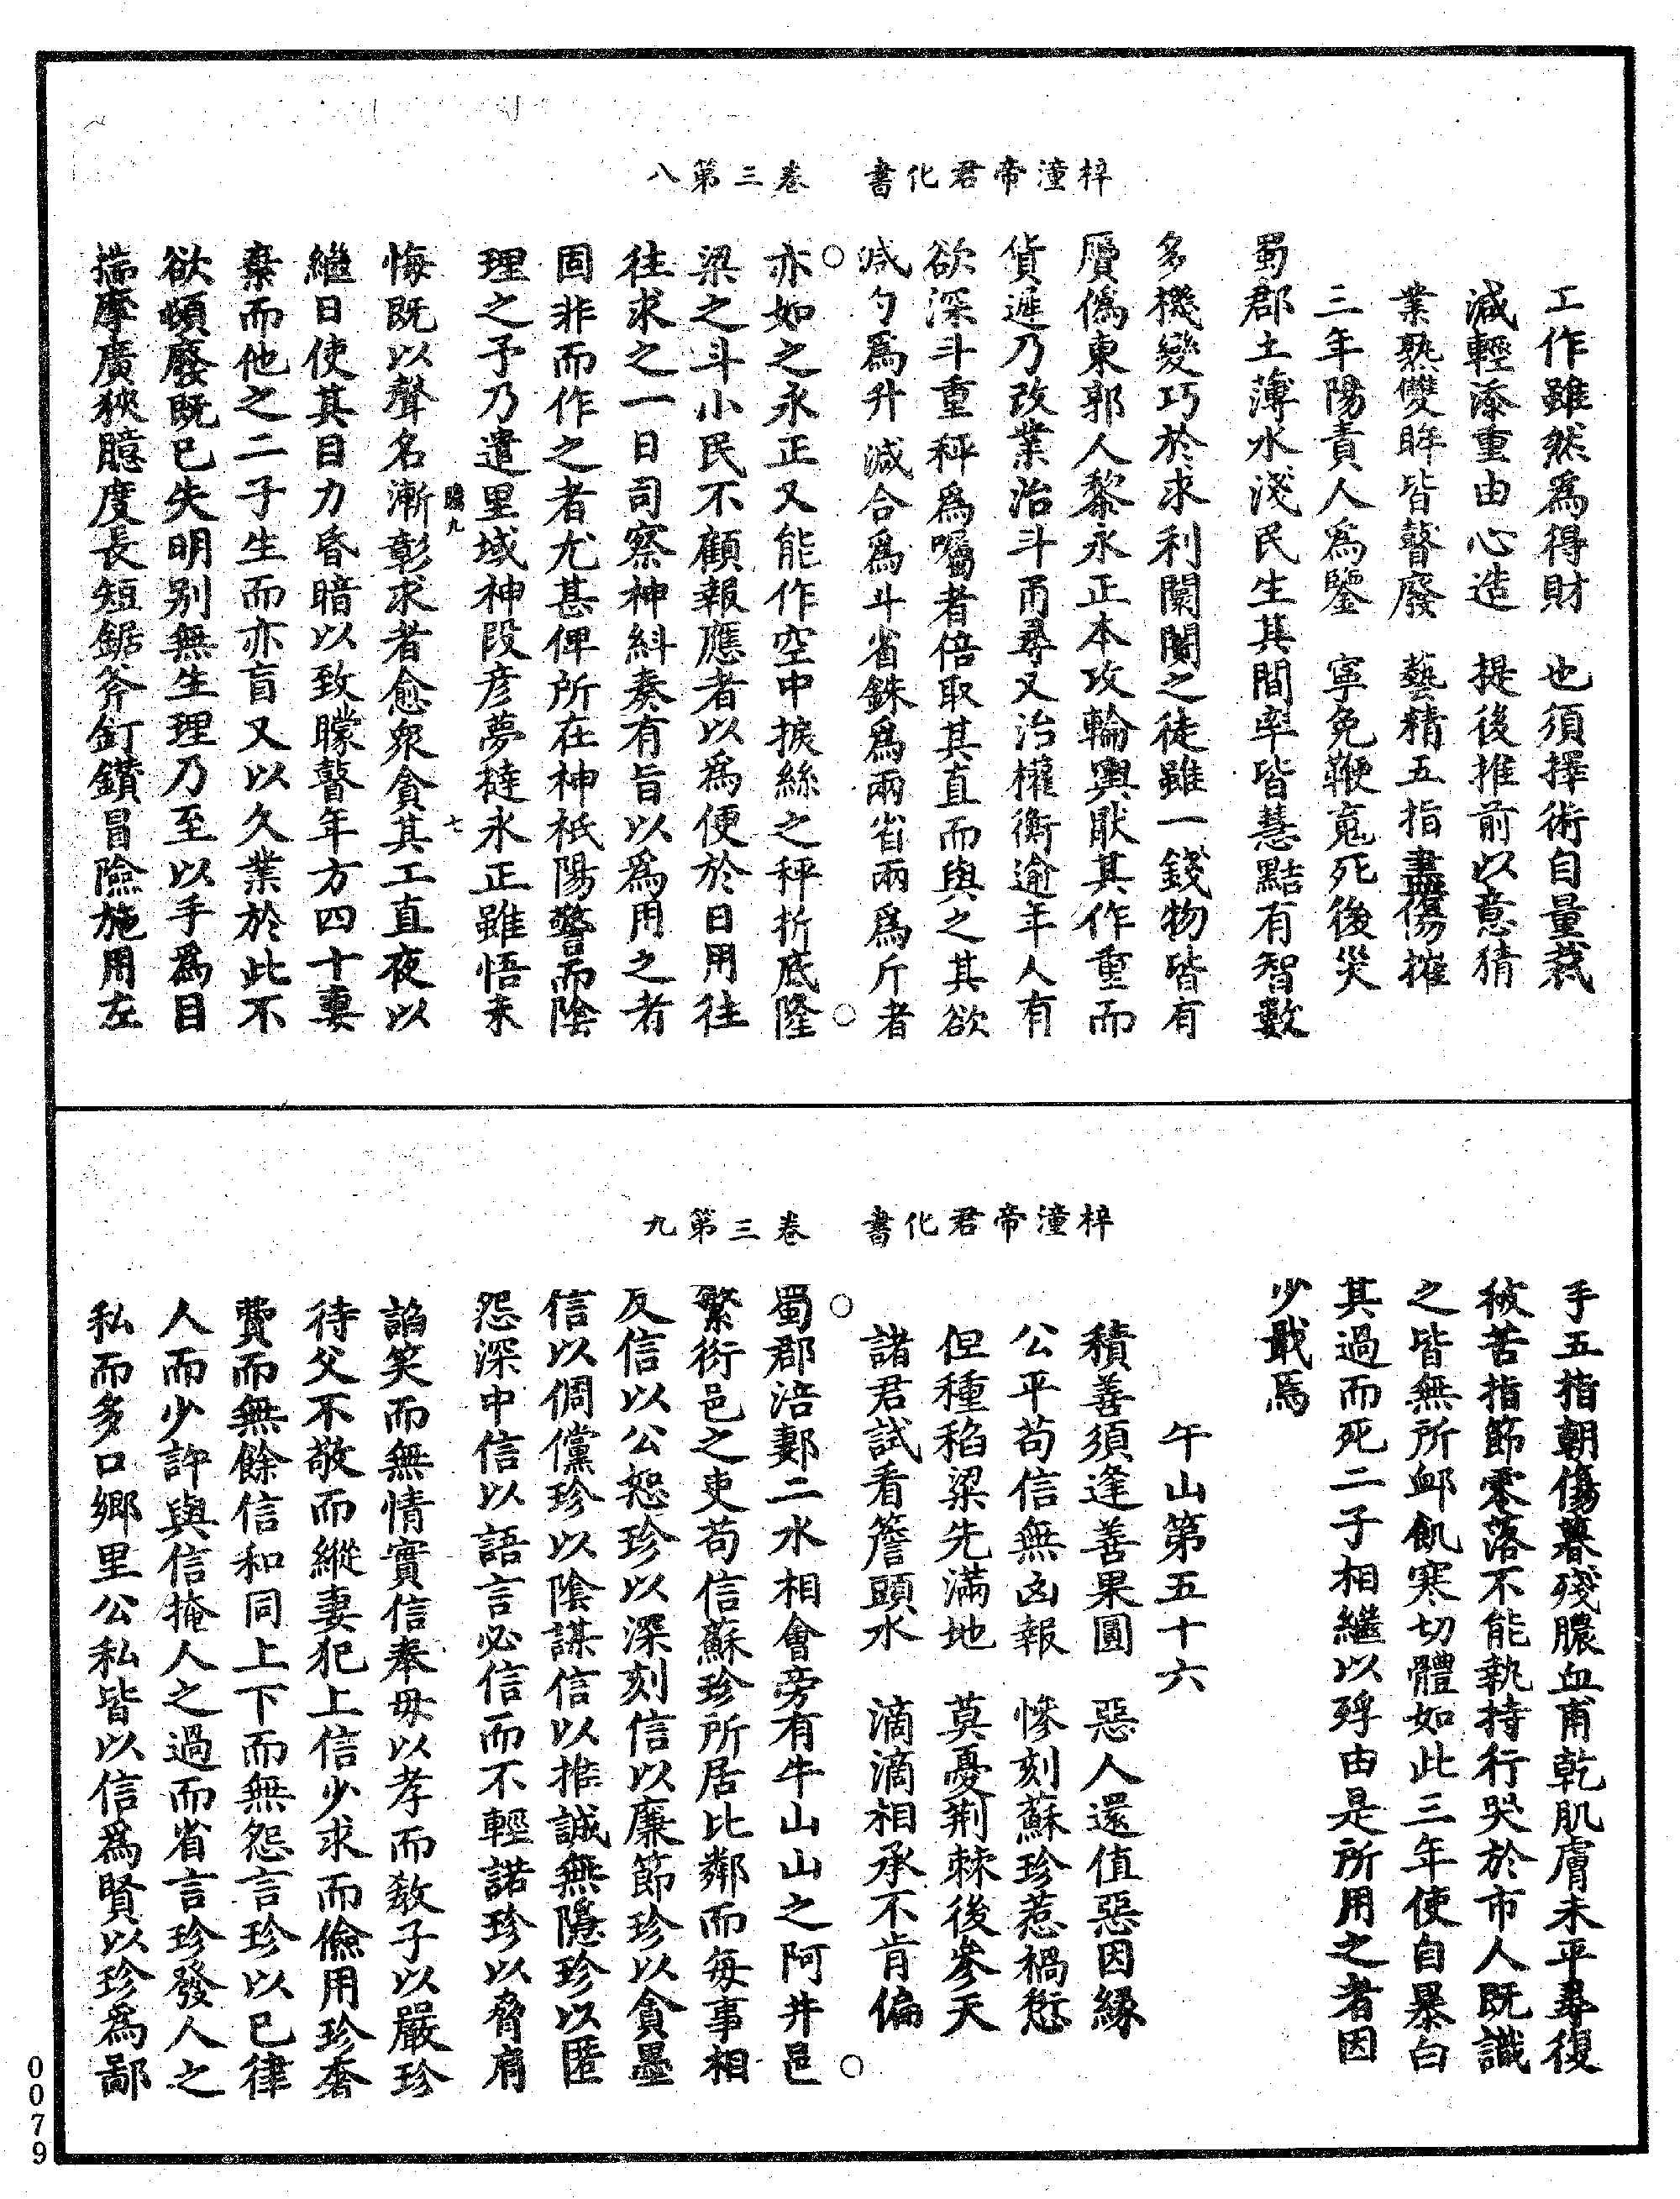 梓潼帝君化書　卷三第八
工作雖然爲得財　也須擇術自量裁
減輕添重由心造　提後推前以意猜
業熟雙眸皆瞽廢　藝精五指盡傷摧
三年陽責人爲鑒　寧免鞭寃死後災
蜀郡土薄水淺民生其間率皆慧黠有智數
多機變巧於求利闤闠之徒雖一錢物皆有
贗僞東郭人黎永正本攻輪輿猒其作重而
貨遲乃改業治斗甬尋又治權衡逾年人有
欲深斗重秤爲囑者倍取其直而與之其欲
減勺爲升減合爲斗省銖爲兩省兩爲斤者
亦如之永正又能作空中捩絲之秤折底隆
梁之斗小民不顧報應者以爲便於日用往
往求之一日司察神糾奏有旨以爲用之者
固非而作之者尤甚俾所在神祇陽警而陰
理之予乃遣里域神段彦夢撻永正雖悟未
悔既以聲名漸彰求者愈衆貪其工直夜以
繼日使其目力昏暗以致矇瞽年方四十妻
棄而他之二子生而亦盲又以久業於此不
欲頓廢既已失明别無生理乃至以手爲目
揣摩廣狹臆度長短鋸斧釘鑽冒險施用左
七
梓潼帝君化書　卷三第九
手五指朝傷暮殘膿血甫乾肌膚未平尋復
被苦指節零落不能執持行哭於市人既識
之皆無所䘏飢寒切體如此三年使自暴白
其過而死二子相繼以殍由是所用之者因
少戢焉
牛山第五十六
積善須逢善果圓　惡人還值惡因緣
公平苟信無凶報　慘刻蘇珍惹禍愆
但種稻梁先滿地　莫憂荆棘後參天
諸君試看簷頭水　滴滴相承不肯偏
蜀郡涪郪二水相會旁有牛山山之阿井邑
繁衍邑之吏苟信蘇珍所居比鄰而每事相
反信以公恕珍以深刻信以廉節珍以貪墨
信以倜儻珍以陰謀信以推誠無隱珍以匿
怨深中信以語言必信而不輕諾珍以脅肩
諂笑而無情實信奉母以孝而教子以嚴珍
待父不敬而縱妻犯上信少求而儉用珍奢
費而無餘信和同上下而無怨言珍以已律
人而少許與信掩人之過而省言珍發人之
私而多口鄉里公私皆以信爲賢以珍爲鄙
0079